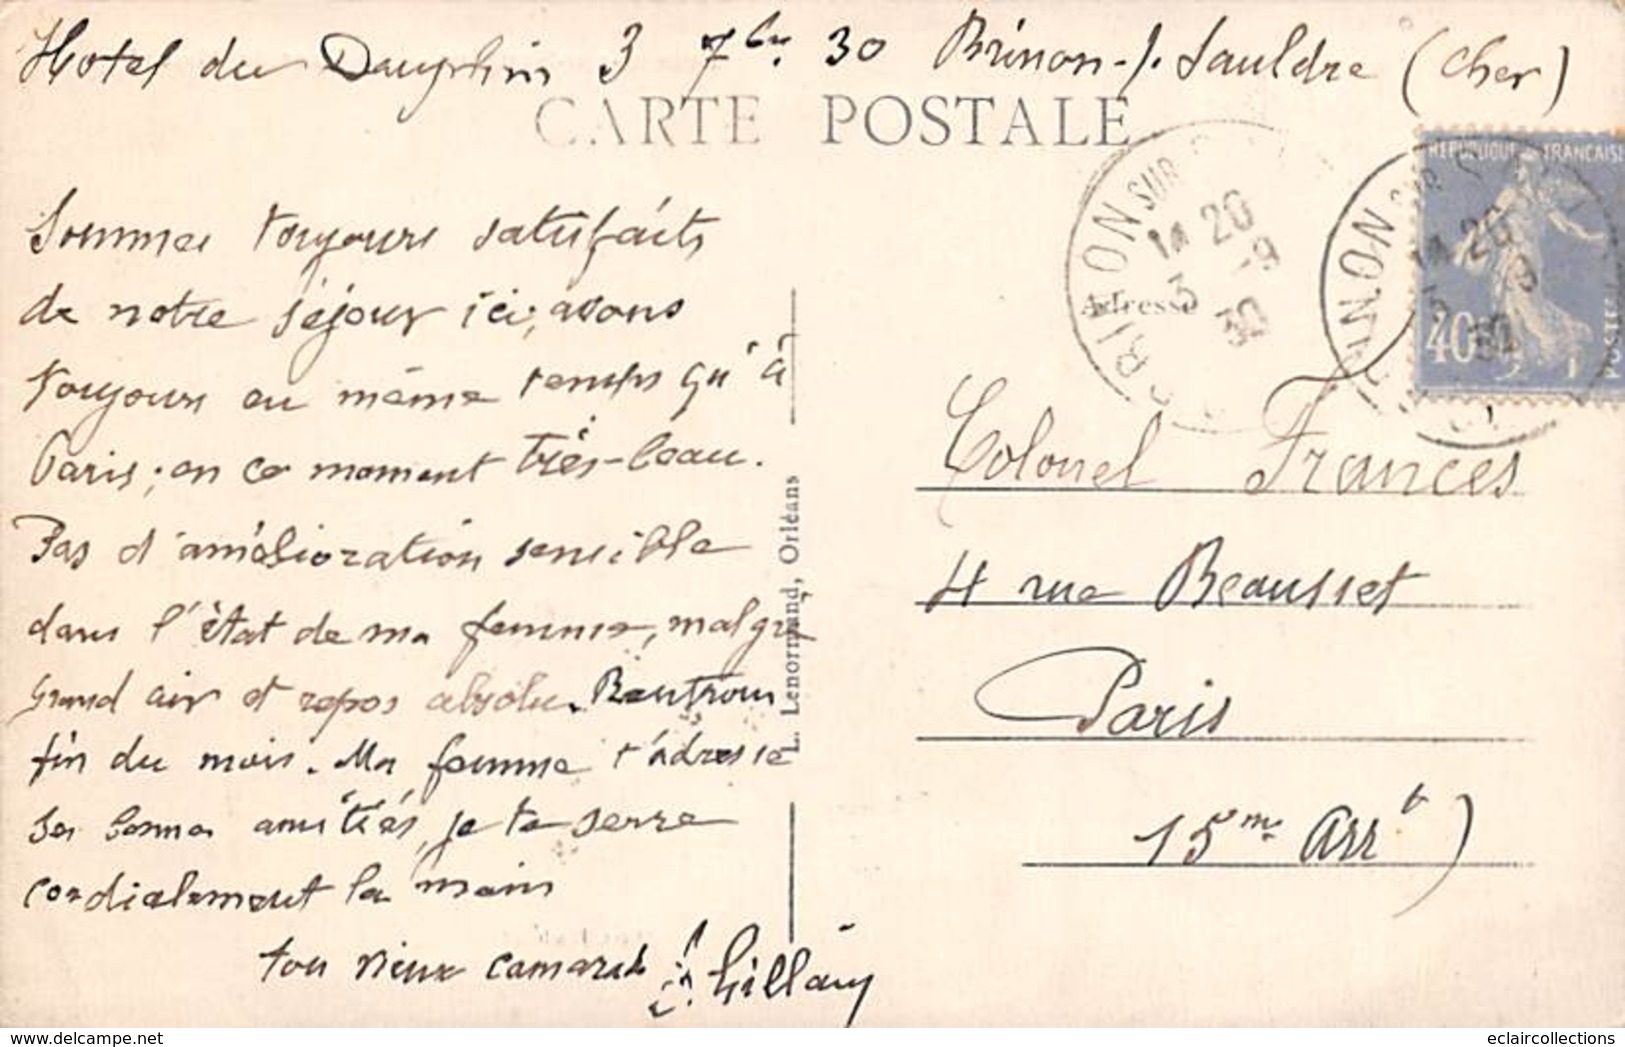 Hotel du Dauphin 3 7bre 30 Brinon-s/. Sauldre (Cher)
CARTE POSTALE
Sommes toujours satisfaits
de notre séjour ici, avons
toujours eu même temps qu'à
Paris; en ce moment très-beau.
Pas d'amélioration sensible
dans l'état de ma femme, malgré
grand air et repos absolu. Rentrons
fin du mois. Ma femme t'adresse
ses bonnes amitiés, je te serre
cordialement la main
ton vieux camarade
L. Lenormand, Orléans
BRINON SUR
14 20
3 -9
30
REPUBLIQUE FRANCAISE
40
POSTES
BRINON SUR
14 20
3 9
30
Adresse
Colonel Frances
4 rue Beausset
Paris
15me Arrt)
eclaircollections